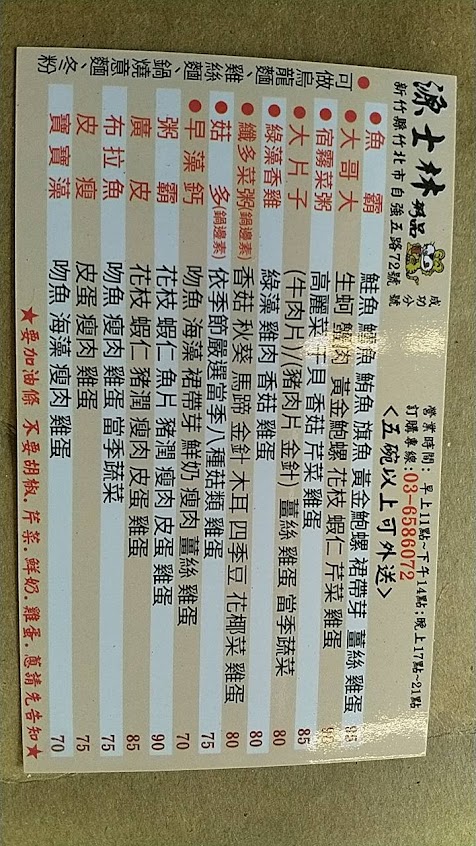 源士林 粥品 成功分號
新竹縣竹北市自強五路72號
營業時間：早上11點~下午14點；晚上17點~21點
訂購專線：03-6586072
<五碗以上可外送>
●魚霸 鮭魚 鱈魚 鮪魚 旗魚 黃金鮑螺 裙帶芽 薑絲 雞蛋 85
●大哥大 生蚵 蟹肉 黃金鮑螺 花枝 蝦仁 芹菜 雞蛋
●宿霧菜粥 高麗菜 干貝 香菇 芹菜 雞蛋 85
●大片子 (牛肉片)/(豬肉片 金針) 薑絲 雞蛋 當季蔬菜 80
●綠藻香雞 綠藻 雞肉 香菇 雞蛋 80
●纖多菜粥(鍋邊素) 香菇 秋葵 馬蹄 金針 木耳 四季豆 花椰菜 雞蛋 80
●菇多(鍋邊素) 依季節嚴選當季八種菇類 雞蛋 75
●早藻鈣 吻魚 海藻 裙帶芽 鮮奶 瘦肉 薑絲 雞蛋 70
粥霸 花枝 蝦仁 魚片 豬潤 瘦肉 皮蛋 雞蛋 90
廣皮 花枝 蝦仁 豬潤 瘦肉 皮蛋 雞蛋 85
布拉魚 吻魚 瘦肉 雞蛋 當季蔬菜 75
皮瘦 皮蛋 瘦肉 雞蛋 75
寶寶藻 吻魚 海藻 瘦肉 雞蛋 70
●可做烏龍麵、雞絲麵、鍋燒意麵、冬粉
★要加油條 不要胡椒.芹菜.鮮奶.雞蛋.蔥請先告知★